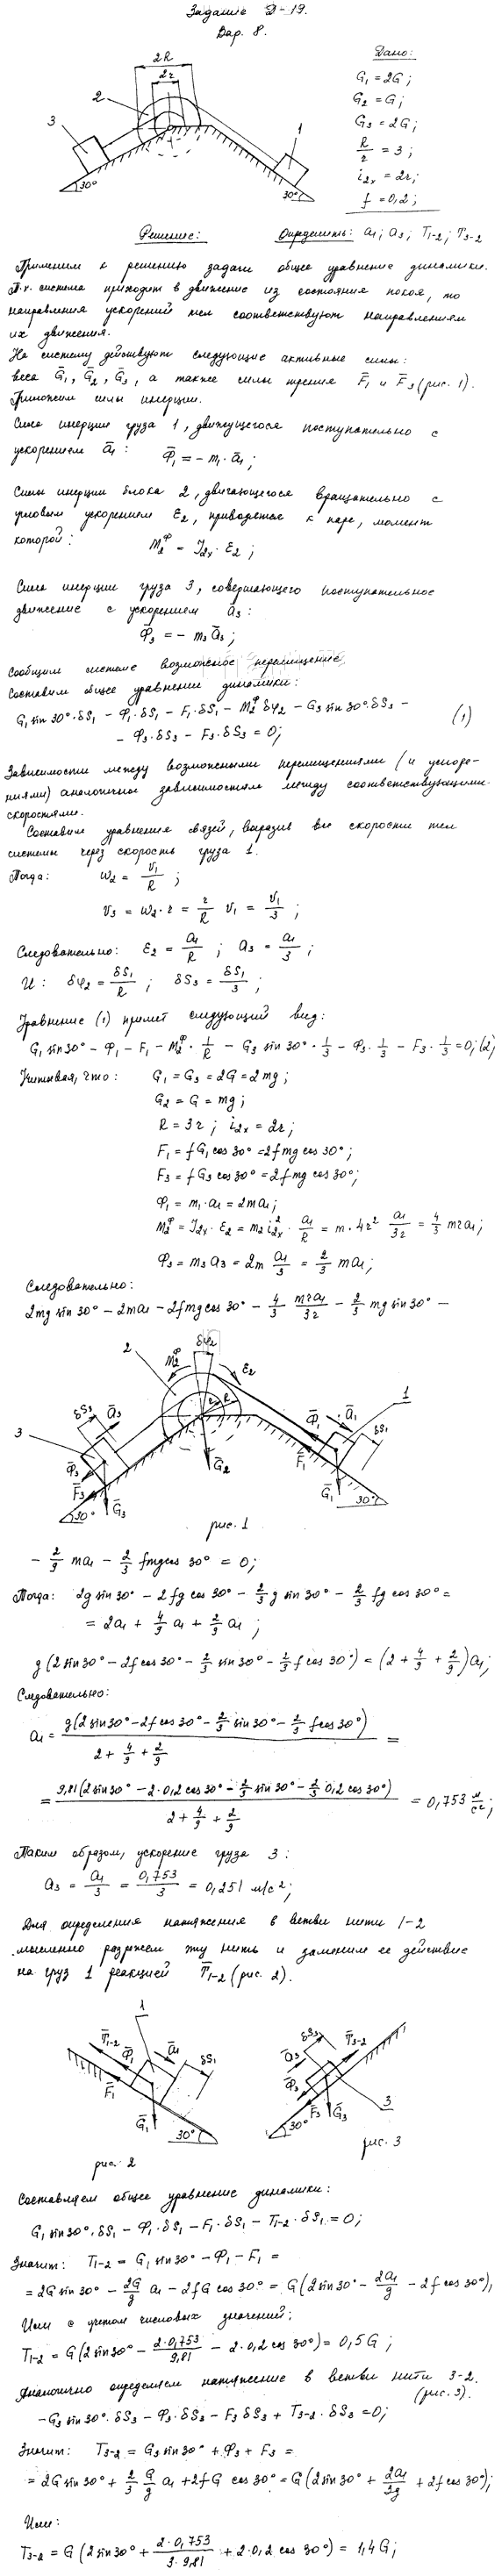 Задание Д-19.
Вар. 8.
2R
2r
2
3
1
30°
30°
Дано:
G₁ = 2G;
G₂ = G;
G₃ = 2G;
R/r = 3;
i₂ₓ = 2r;
f = 0,2;
Решение: Определить: a₁; a₃; T₁₋₂; T₃₋₂
Применим к решению задачи общее уравнение динамики.
Т.к. система приходит в движение из состояния покоя, то
направления ускорений тел соответствуют направлениям
их движения.
На систему действуют следующие активные силы:
веса G̅₁, G̅₂, G̅₃, а также силы трения F̅₁ и F̅₃ (рис. 1).
Приложим силы инерции.
Сила инерции груза 1, движущегося поступательно с
ускорением a̅₁: Φ̅₁ = - m₁ · a̅₁;
Силы инерции блока 2, двигающегося вращательно с
угловым ускорением ε₂, приводятся к паре, момент
которой: M₂^Φ = J₂ₓ · ε₂;
Сила инерции груза 3, совершающего поступательное
движение с ускорением a̅₃:
Φ̅₃ = - m₃ a̅₃;
Сообщим системе возможное перемещение.
Составим общее уравнение динамики:
G₁ sin 30° · δS₁ - Φ₁ · δS₁ - F₁ · δS₁ - M₂^Φ δφ₂ - G₃ sin 30° · δS₃ - (1)
- Φ₃ · δS₃ - F₃ · δS₃ = 0;
Зависимости между возможными перемещениями (и ускоре-
ниями) аналогичны зависимостям между соответствующими
скоростями.
Составим уравнения связей, выразив все скорости тел
системы через скорость груза 1.
Тогда: ω₂ = V₁/R;
V₃ = ω₂ · r = r/R V₁ = V₁/3;
Следовательно: ε₂ = a₁/R; a₃ = a₁/3;
И: δφ₂ = δS₁/R; δS₃ = δS₁/3;
Уравнение (1) примет следующий вид:
G₁ sin 30° - Φ₁ - F₁ - M₂^Φ · 1/R - G₃ sin 30° · 1/3 - Φ₃ · 1/3 - F₃ · 1/3 = 0; (2)
Учитывая, что: G₁ = G₃ = 2G = 2mg;
G₂ = G = mg;
R = 3r; i₂ₓ = 2r;
F₁ = fG₁ cos 30° = 2fmg cos 30°;
F₃ = fG₃ cos 30° = 2fmg cos 30°;
Φ₁ = m₁ · a₁ = 2ma₁;
M₂^Φ = J₂ₓ · ε₂ = m₂ i₂ₓ² · a₁/R = m · 4r² a₁/3r = 4/3 mra₁;
Φ₃ = m₃ a₃ = 2m a₁/3 = 2/3 ma₁;
Следовательно:
2mg sin 30° - 2ma₁ - 2fmg cos 30° - 4/3 mra₁/3r - 2/3 mg sin 30° -
δφ₂
M₂^Φ
2
ε₂
r
R
δS₃
a̅₃
3
Φ̅₃
F̅₃
G̅₃
30°
G̅₂
Φ̅₁
a̅₁
1
δS₁
F̅₁
G̅₁
30°
рис. 1
- 2/9 ma₁ - 2/3 fmg cos 30° = 0;
Тогда: 2g sin 30° - 2fg cos 30° - 2/3 g sin 30° - 2/3 fg cos 30° =
= 2a₁ + 4/9 a₁ + 2/9 a₁;
g (2 sin 30° - 2f cos 30° - 2/3 sin 30° - 2/3 f cos 30°) = (2 + 4/9 + 2/9) a₁;
Следовательно:
a₁ = g (2 sin 30° - 2f cos 30° - 2/3 sin 30° - 2/3 f cos 30°) / (2 + 4/9 + 2/9) =
= 9,81 (2 sin 30° - 2·0,2 cos 30° - 2/3 sin 30° - 2/3 0,2 cos 30°) / (2 + 4/9 + 2/9) = 0,753 м/с²;
Таким образом, ускорение груза 3:
a₃ = a₁/3 = 0,753/3 = 0,251 м/с²;
Для определения натяжения в ветви нити 1-2
мысленно разрежем эту нить и заменим ее действие
на груз 1 реакцией T̅₁₋₂ (рис. 2).
T̅₁₋₂
Φ̅₁
1
a̅₁
δS₁
F̅₁
G̅₁
30°
рис. 2
δS₃
T̅₃₋₂
a̅₃
Φ̅₃
F̅₃
G̅₃
3
30°
рис. 3
Составляем общее уравнение динамики:
G₁ sin 30° · δS₁ - Φ₁ · δS₁ - F₁ · δS₁ - T₁₋₂ · δS₁ = 0;
Значит: T₁₋₂ = G₁ sin 30° - Φ₁ - F₁ =
= 2G sin 30° - 2G/g a₁ - 2fG cos 30° = G (2 sin 30° - 2a₁/g - 2f cos 30°);
Или с учетом числовых значений:
T₁₋₂ = G (2 sin 30° - 2·0,753/9,81 - 2·0,2 cos 30°) = 0,5G;
Аналогично определяем натяжение в ветви нити 3-2.
(рис. 3).
-G₃ sin 30° · δS₃ - Φ₃ · δS₃ - F₃ δS₃ + T₃₋₂ · δS₃ = 0;
Значит: T₃₋₂ = G₃ sin 30° + Φ₃ + F₃ =
= 2G sin 30° + 2/3 G/g a₁ + 2fG cos 30° = G (2 sin 30° + 2a₁/3g + 2f cos 30°);
Или:
T₃₋₂ = G (2 sin 30° + 2·0,753/3·9,81 + 2·0,2 cos 30°) = 1,4G;